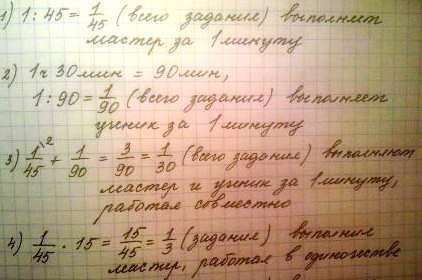 1) 1 : 45 = 1/45 (всего задания) выполняет
мастер за 1 минуту
2) 1ч 30мин = 90мин,
1 : 90 = 1/90 (всего задания) выполняет
ученик за 1 минуту
3) 1/45 \2 + 1/90 = 3/90 = 1/30 (всего задания) выполняют
мастер и ученик за 1 минуту,
работая совместно
4) 1/45 · 15 = 15/45 = 1/3 (задания) выполнил
мастер, работая в одиночестве